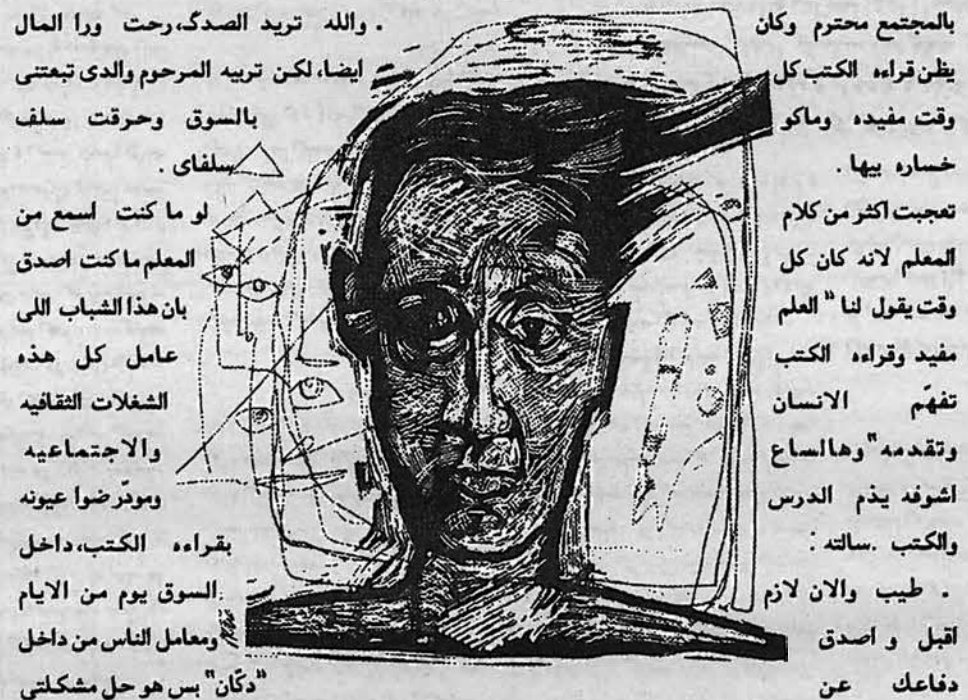 بالمجتمع محترم وكان
يظن قراءه الكتب كل
وقت مفيده وماكو
خساره بيها .
تعجبت اكثر من كلام
المعلم لانه كان كل
وقت يقول لنا " العلم
مفيد وقراءه الكتب
تفهّم الانسان
وتقدمه" وهالساع
اشوفه يذم الدرس
والكتب .سالته :
. طيب والان لازم
اقبل و اصدق
دفاعك عن
. والله تريد الصدگ،رحت ورا المال
ايضا، لكن تربيه المرحوم والدى تبعتنى
بالسوق وحرقت سلف
سلفاى .
لو ما كنت اسمع من
المعلم ما كنت اصدق
بان هذا الشباب اللى
عامل كل هذه
الشغلات الثقافيه
والاجتماعيه
ومودّر ضوا عيونه
بقراءه الكتب،داخل
السوق يوم من الايام
ومعامل الناس من داخل
"دكّان" بس هو حل مشكلتي